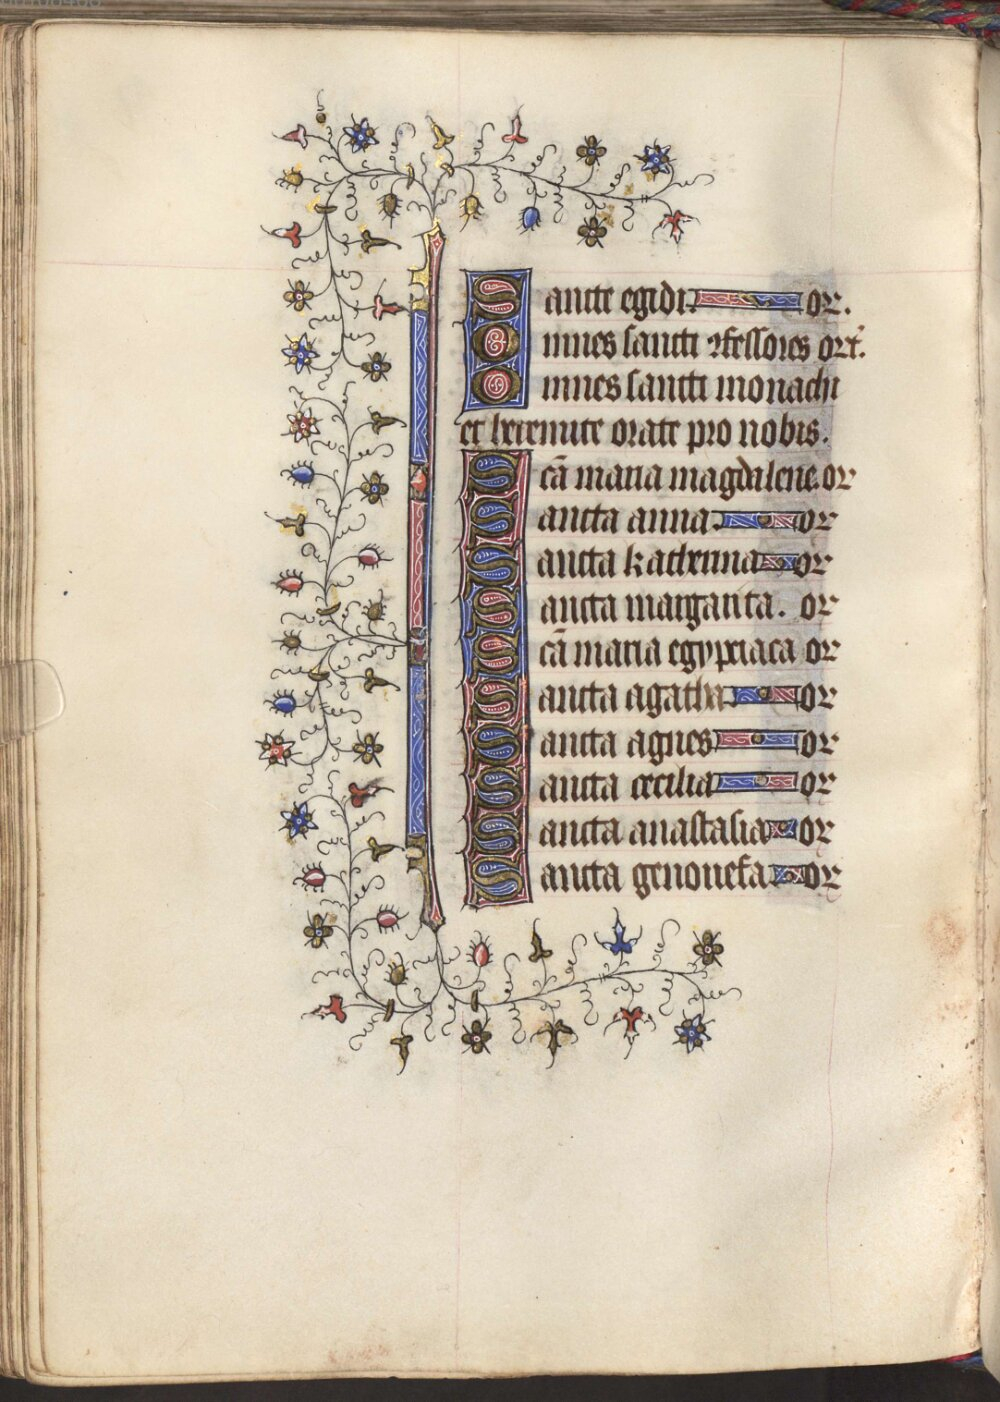 Sancte egidi or.
Omnes sancti ꝯfessores ort̄.
Omnes sancti monachi
et heremite orate pro nobis.
Scā maria magdalene.or
Sancta anna. or
Sancta katherina or
Sancta margarita. or
Scā maria egypciaca or
Sancta agatha or
Sancta agnes or
Sancta cecilia or
Sancta anastasia or
Sancta genouefa or